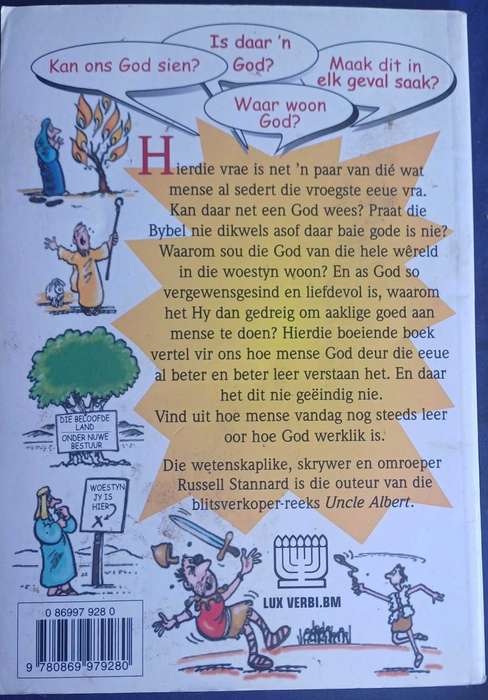 Is daar 'n
God?
Kan ons God sien?
Maak dit in
elk geval saak?
Waar woon
God?
Hierdie vrae is net 'n paar van dié wat
mense al sedert die vroegste eeue vra.
Kan daar net een God wees? Praat die
Bybel nie dikwels asof daar baie gode is nie?
Waarom sou die God van die hele wêreld
in die woestyn woon? En as God so
vergewensgesind en liefdevol is, waarom
het Hy dan gedreig om aaklige goed aan
mense te doen? Hierdie boeiende boek
vertel vir ons hoe mense God deur die eeue
al beter en beter leer verstaan het. En daar
het dit nie geëindig nie.
Vind uit hoe mense vandag nog steeds leer
oor hoe God werklik is.
Die wetenskaplike, skrywer en omroeper
Russell Stannard is die outeur van die
blitsverkoper-reeks Uncle Albert.
DIE BELOOFDE
LAND
ONDER NUWE
BESTUUR
WOESTYN
JY IS
HIER?
X
LUX VERBI.BM
0 86997 928 0
9 780869 979280